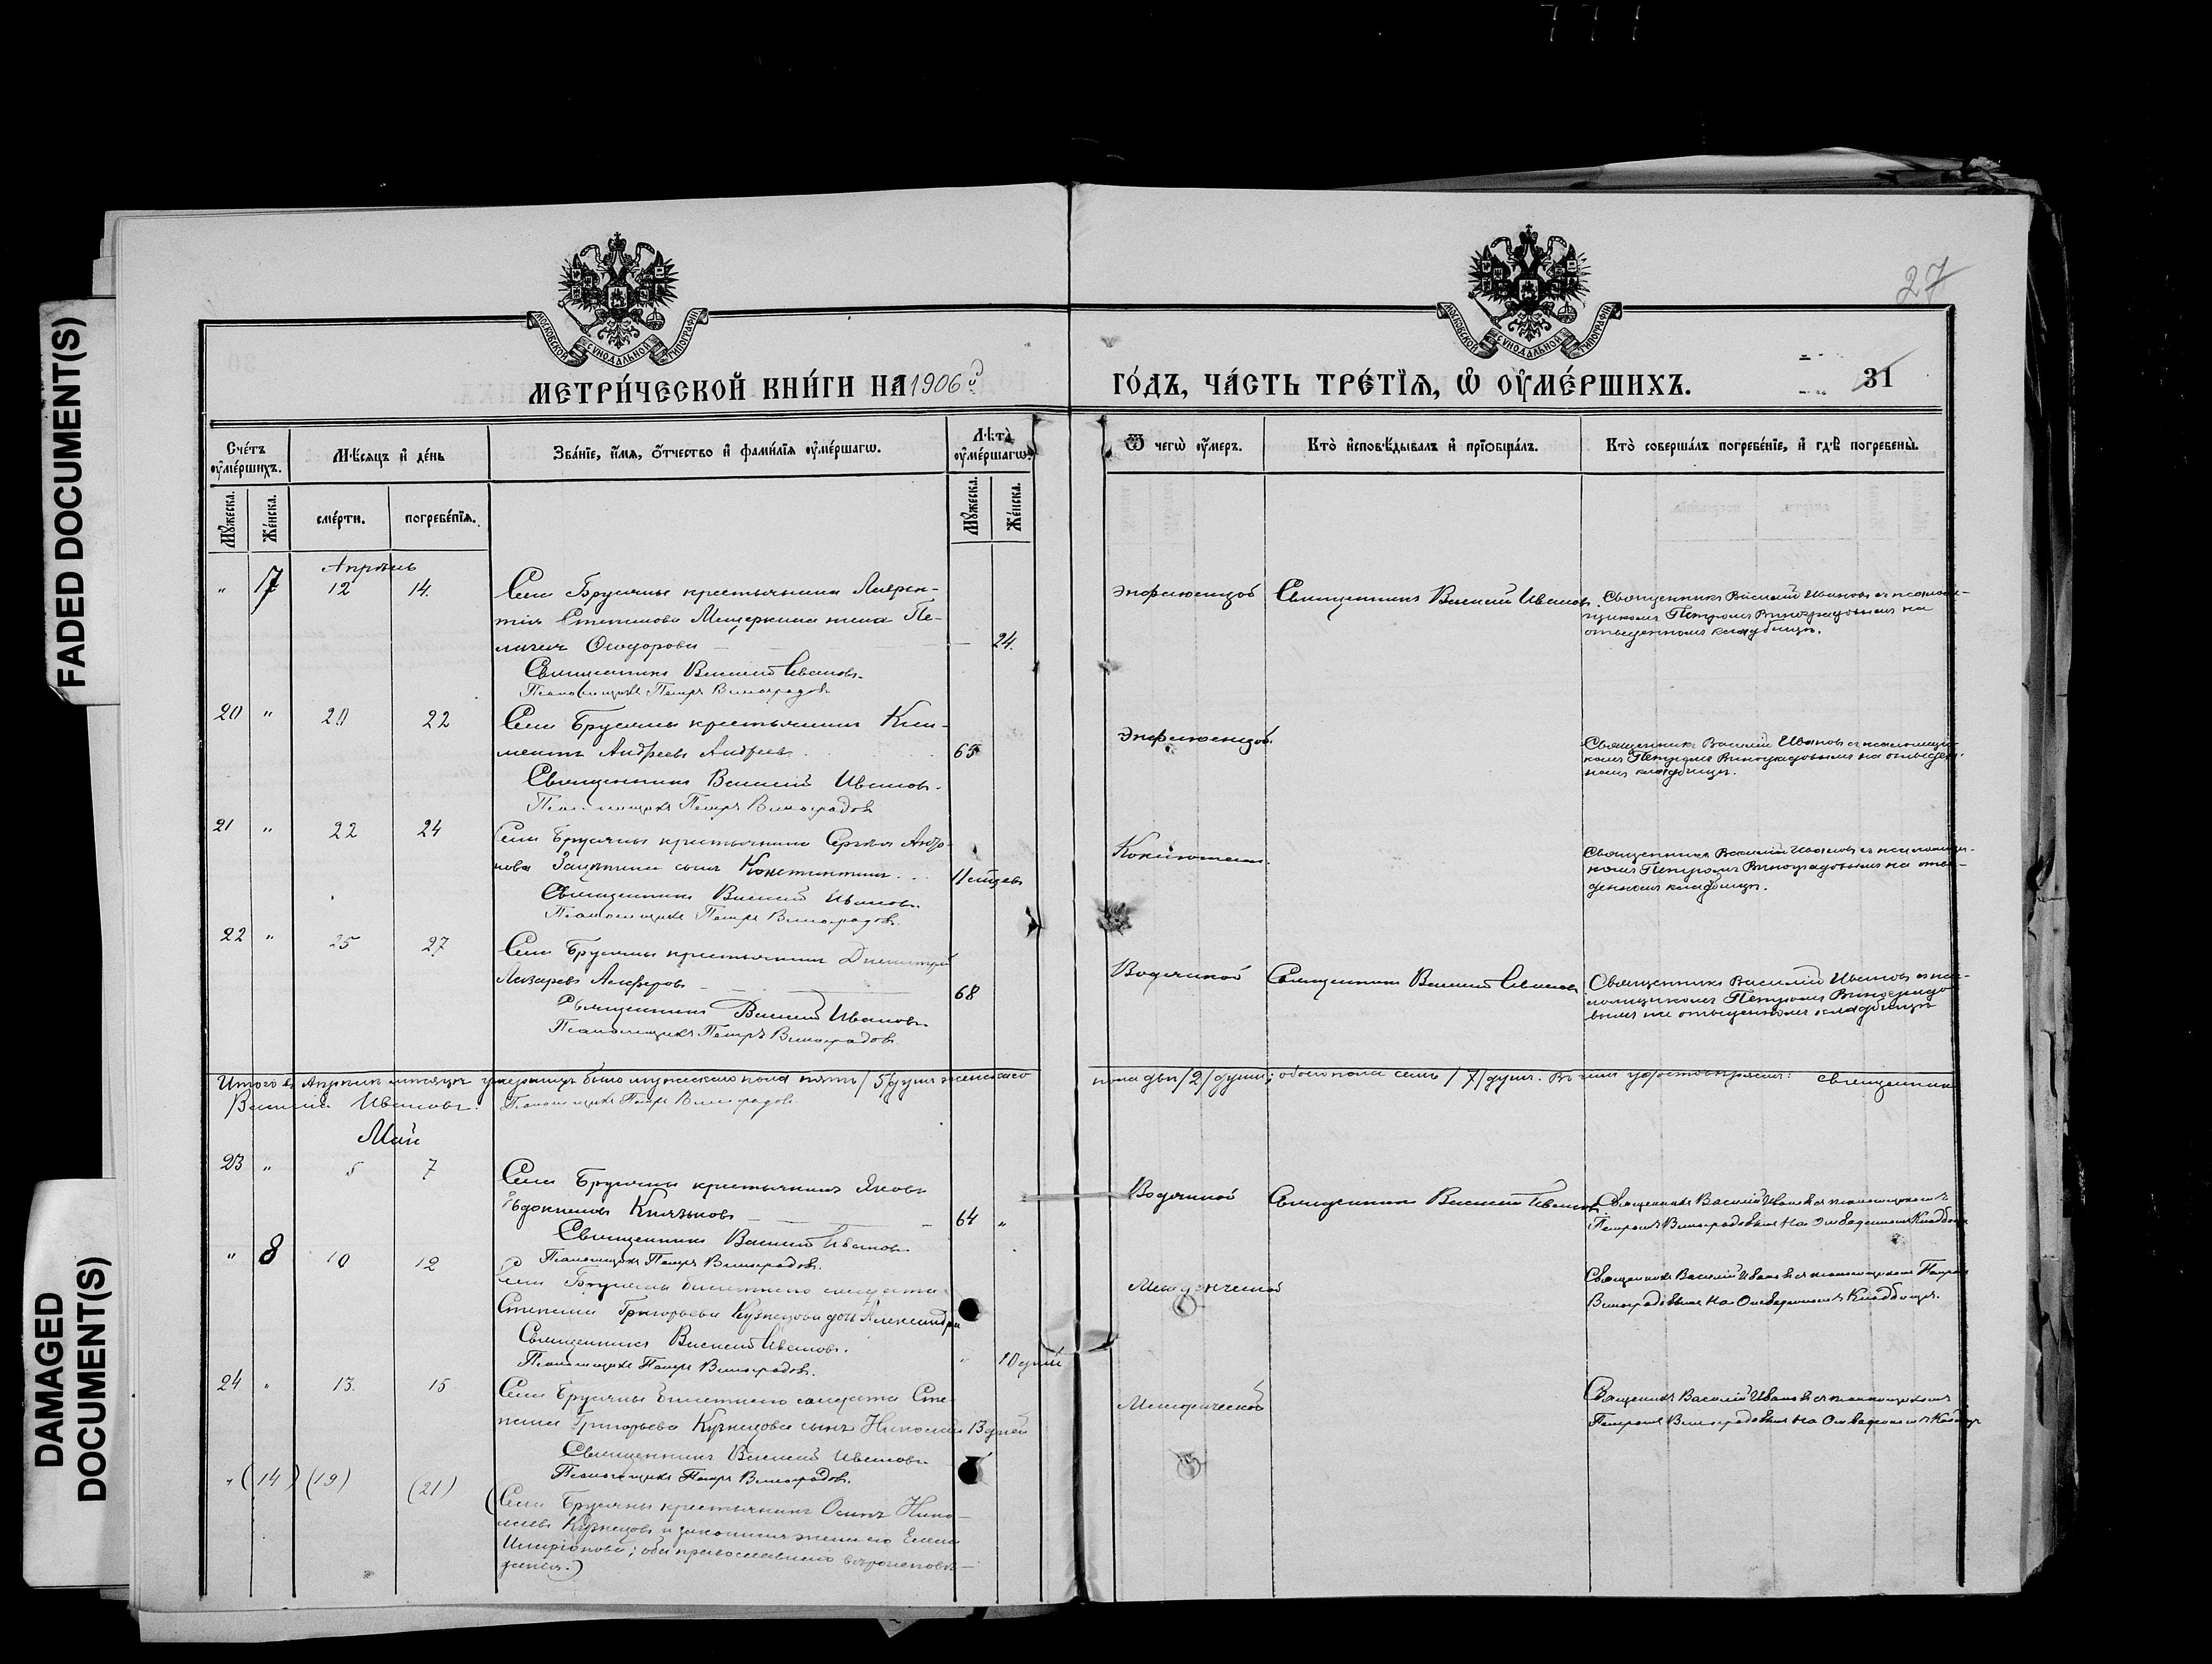 FADED DOCUMENT(S)
DAMAGED
DOCUMENT(S)
27
МОСКОВСКОЙ СУНОДАЛЬНОЙ ТИПОГРАФІИ
МОСКОВСКОЙ СУНОДАЛЬНОЙ ТИПОГРАФІИ
МЕТРИ́ЧЕСКОЙ КНИ́ГИ НА 1906й ГО́ДЪ, ЧА́СТЬ ТРЕ́ТЇѦ, Ѡ҆ ОУ҆МЕ́РШИХЪ.
31
Сче́тъ оу҆ме́ршихъ.
Мѣ́сѧцъ и҆ де́нь
Зва́нїе, и҆́мѧ, ѻ҆́тчество и҆ фами́лїѧ оу҆ме́ршагѡ.
Лѣ́та оу҆ме́ршагѡ.
Ѿ чегѡ̀ оу҆́меръ.
Кто̀ и҆сповѣ́дывалъ и҆ прїѡбща́лъ.
Кто̀ соверша́лъ погребе́нїе, и҆ гдѣ̀ погребены̀.
Мꙋ́жеска.
Же́нска.
сме́рти.
погребе́нїѧ.
Мꙋ́жеска.
Же́нска.
Апрѣль
" 17 12 14. Села Брусяны крестьянина Лаврен-
тія Степанова Мещеркина жена Пе-
лагея Ѳеодорова 24.
Священникъ Василій Ивановъ.
Псаломщикъ Петръ Виноградовъ
Священникъ Василій Ивановъ.
Священникъ Василій Ивановъ съ псалом-
щикомъ Петромъ Виноградовымъ на
отведенномъ кладбищѣ.
20 " 20 22 Села Брусяны крестьянинъ Кли-
ментъ Андреевъ Андреевъ 65
Священникъ Василій Ивановъ.
Псаломщикъ Петръ Виноградовъ
Священникъ Василій Ивановъ съ псаломщи-
комъ Петромъ Виноградовымъ на отведен-
номъ кладбищѣ.
21 " 22 24 Села Брусяны крестьянина Сергѣя
сынъ Константинъ 11 мѣсяцевъ
Священникъ Василій Ивановъ.
Псаломщикъ Петръ Виноградовъ.
Священникъ Василій Ивановъ съ псаломщи-
комъ Петромъ Виноградовымъ на отве-
денномъ кладбищѣ.
22 " 25 27 Села Брусяны крестьянинъ Димитрій
Лазаревъ 68
Священникъ Василій Ивановъ.
Псаломщикъ Петръ Виноградовъ.
Водянкой
Священникъ Василій Ивановъ
Священникъ Василій Ивановъ съ пса-
ломщикомъ Петромъ Виноградо-
вымъ на отведенномъ кладбищѣ
Итого въ Апрѣлѣ мѣсяцѣ умершихъ было мужескаго пола пять /5/ душъ женскаго пола двѣ /2/ души; обоего пола семь /7/ душъ. Въ чемъ священникъ
Василій Ивановъ. Псаломщикъ Петръ Виноградовъ.
Май
23 " 5 7 Села Брусяны крестьянинъ Яковъ
Евдокимовъ Князьковъ 64 "
Священникъ Василій Ивановъ.
Псаломщикъ Петръ Виноградовъ.
Водянкой
Священникъ Василій Ивановъ.
Священникъ Василій Ивановъ съ псаломщикомъ
Петромъ Виноградовымъ на Отведенномъ Кладбищѣ
" 8 10 12 Села Брусяны билетнаго солдата
Степана Григорьева Кузнецова дочь Александра
Священникъ Василій Ивановъ.
" 10 дней
Псаломщикъ Петръ Виноградовъ.
Младенческой
Священникъ Василій Ивановъ съ псаломщикомъ Петромъ
Виноградовымъ на Отведенномъ Кладбищѣ.
24 " 13. 15 Села Брусяны билетнаго солдата Сте-
пана Григорьева Кузнецова сынъ Николай 13 дней
Священникъ Василій Ивановъ.
Псаломщикъ Петръ Виноградовъ.
Младенческой
Священникъ Василій Ивановъ съ псаломщикомъ
Петромъ Виноградовымъ на Отведенномъ Кладбищѣ
" (14) (19) (21) (Села Брусяны крестьянинъ Осипъ Нико-
лаевъ Кузнецовъ и законная жена его Елена
оба православнаго вѣроисповѣ-
данія.)